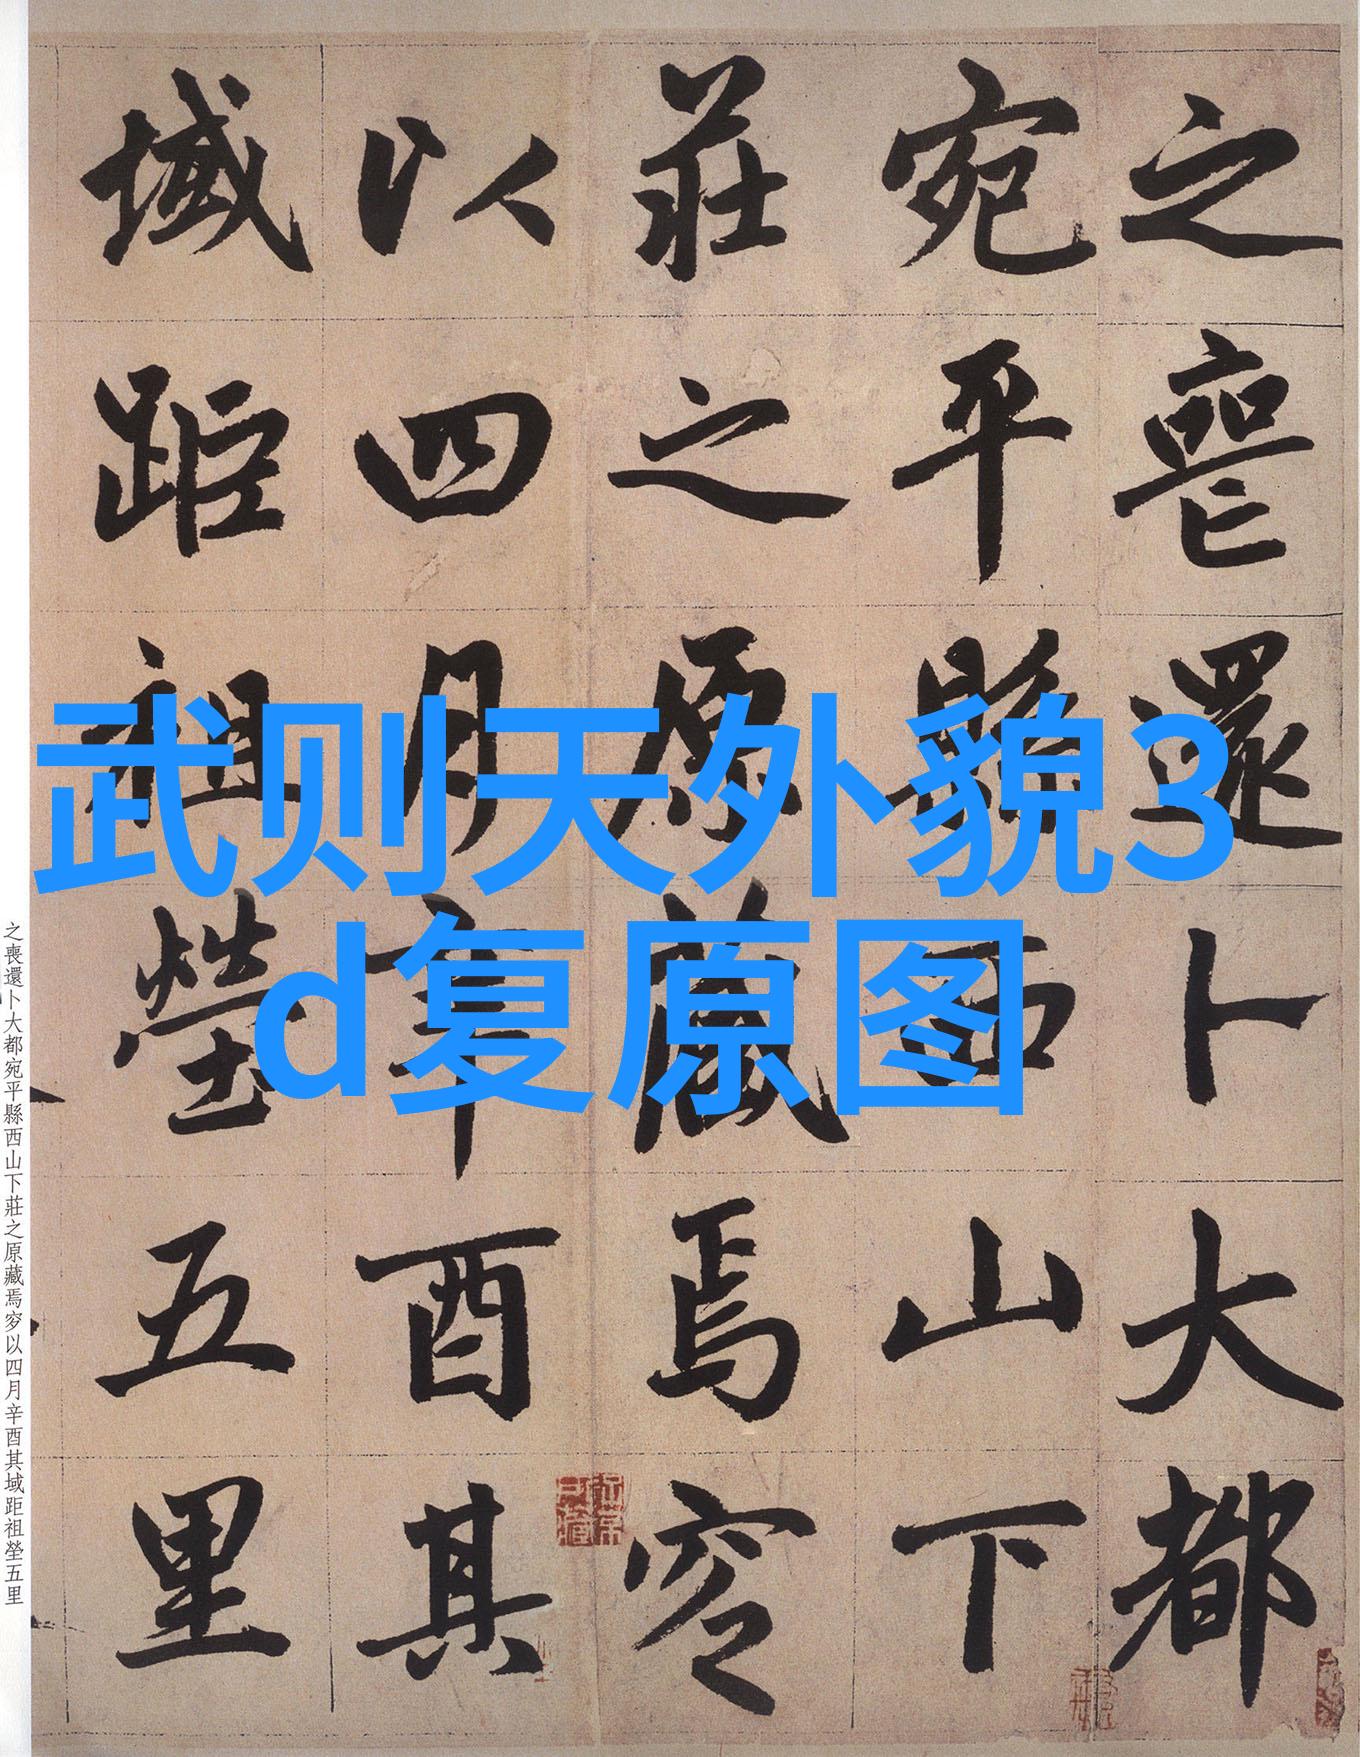 之喪還卜大都
宛平縣西山下
莊之原藏焉穸
以四月辛酉其
域距祖塋五里
武则天外貌3
d复原图
之喪還卜大都宛平縣西山下莊之原藏焉穸以四月辛酉其域距祖塋五里